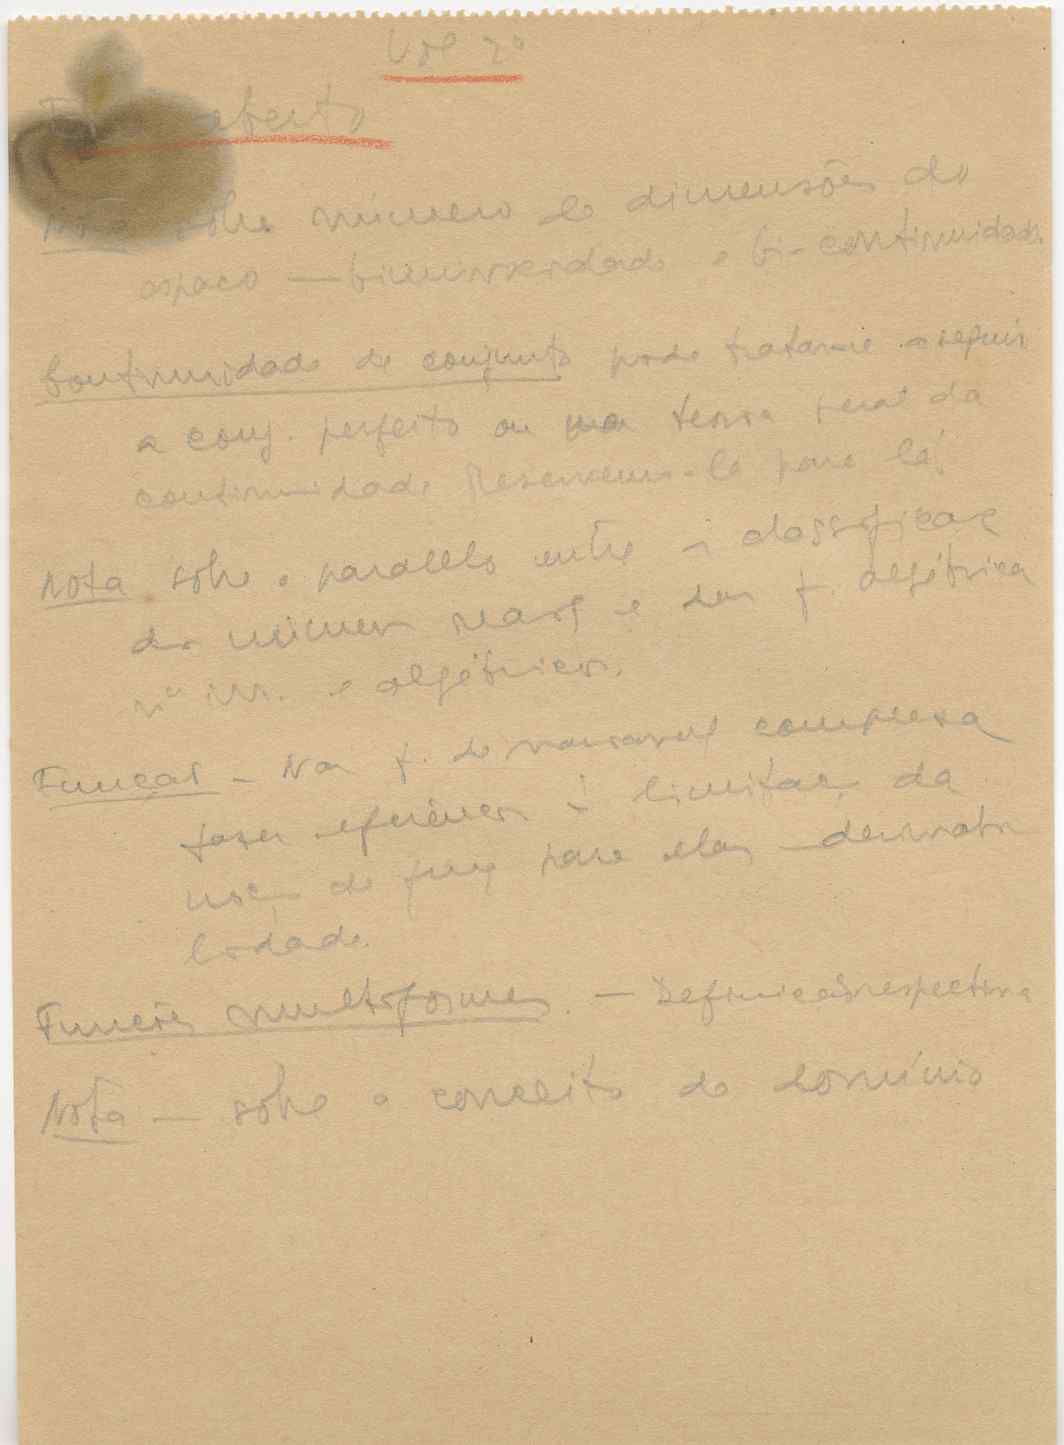 Vol 2º
aberto
Nota sobre número de dimensões do
espaço — biunivocidade e bi-continuidade
Continuidade de conjunto pode tratar-se a seguir
a conj. perfeito ou na teoria geral da
continuidade. Reservemo-lo para lá.
Nota sobre o paralelo entre a classificaç
dos números reais e das f. algébrica
nºs irr. e algébricos.
Função — Nas f. de variável complexa
fazer referência à limitaç da
noç de funç para elas — derivabi
lidade.
Funções multiformes — Definição respectiva
Nota — sôbre o conceito de domínio